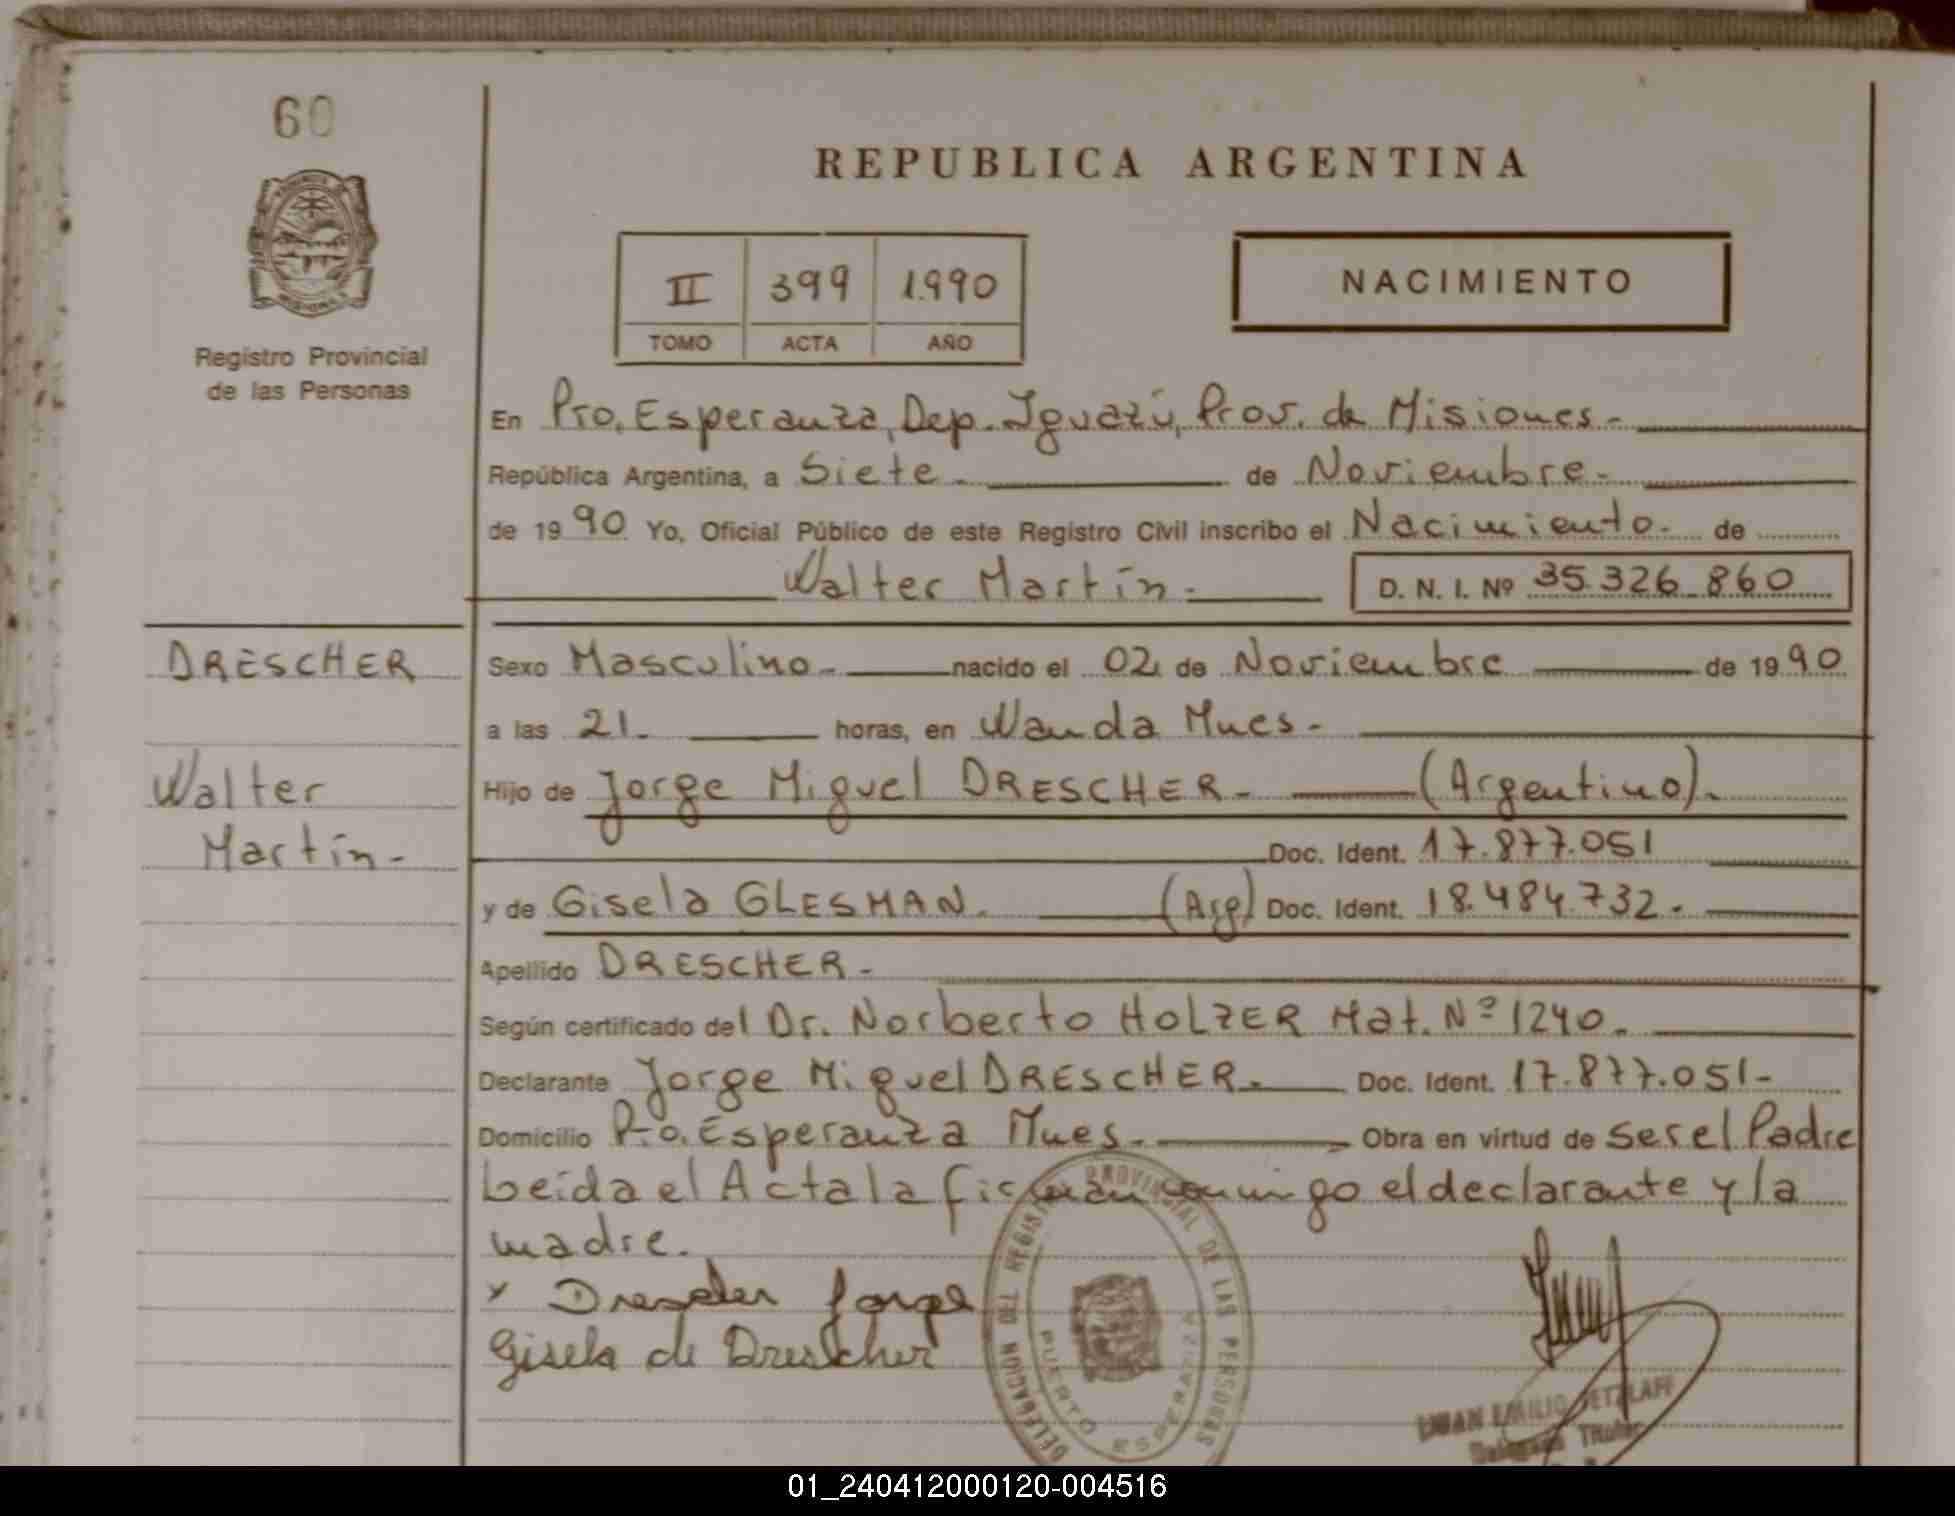 60
REPUBLICA ARGENTINA
II 399 1.990
TOMO ACTA AÑO
NACIMIENTO
Registro Provincial
de las Personas
En Pto. Esperanza, Dep. Iguazú, Prov. de Misiones.-
República Argentina, a Siete.- de Noviembre.-
de 19 90 Yo, Oficial Público de este Registro Civil inscribo el Nacimiento. de
Walter Martín.- D. N. I. Nº 35.326.860
DRESCHER
Walter
Martín-
Sexo Masculino.- nacido el 02 de Noviembre de 19 90
a las 21.- horas, en Wanda Mnes.-
Hijo de Jorge Miguel DRESCHER.- (Argentino).
Doc. Ident. 17.877.051
y de Gisela GLESMAN. (Arg) Doc. Ident. 18.484.732.-
Apellido DRESCHER.-
Según certificado del Dr. Norberto HOLZER Mat. Nº 1240.
Declarante Jorge Miguel DRESCHER.- Doc. Ident. 17.877.051-
Domicilio Pto. Esperanza Mnes.- Obra en virtud de ser el Padre
Leída el Acta la firman conmigo el declarante y la
madre.
x Drescher Jorge
Gisela de Drescher
DELEGACION DEL REGISTRO PROVINCIAL DE LAS PERSONAS
PUERTO ESPERANZA
EMILIO PETZLAFF
Delegado Titular
01_240412000120-004516